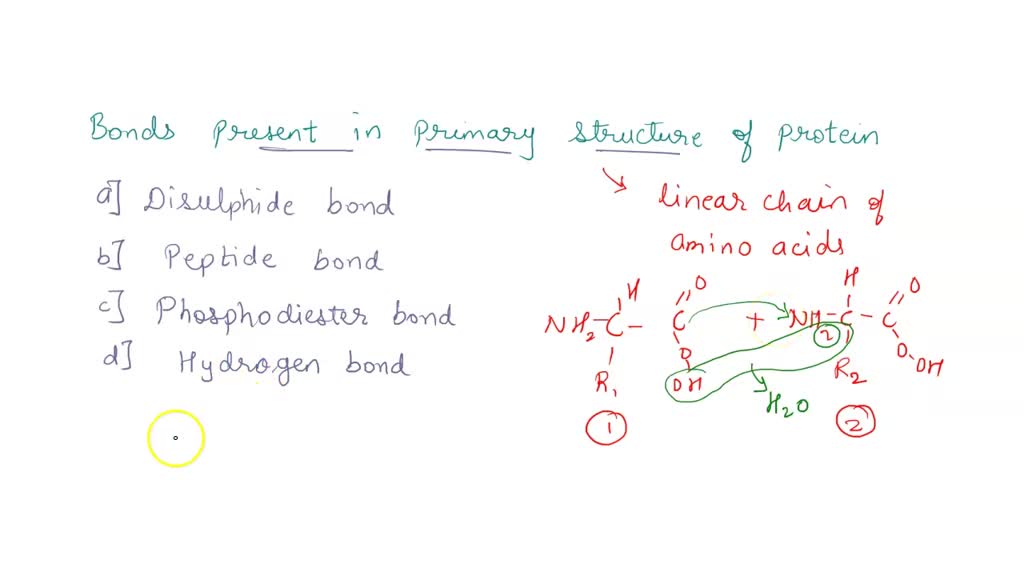 Bonds present in primary structure of protein
a] Disulphide bond
b] Peptide bond
c] Phosphodiester bond
d] Hydrogen bond
linear chain of
amino acids
H O H O
NH2 - C - C + NH2 - C - C
R1 O OH R2 O OH
H2O
1 2